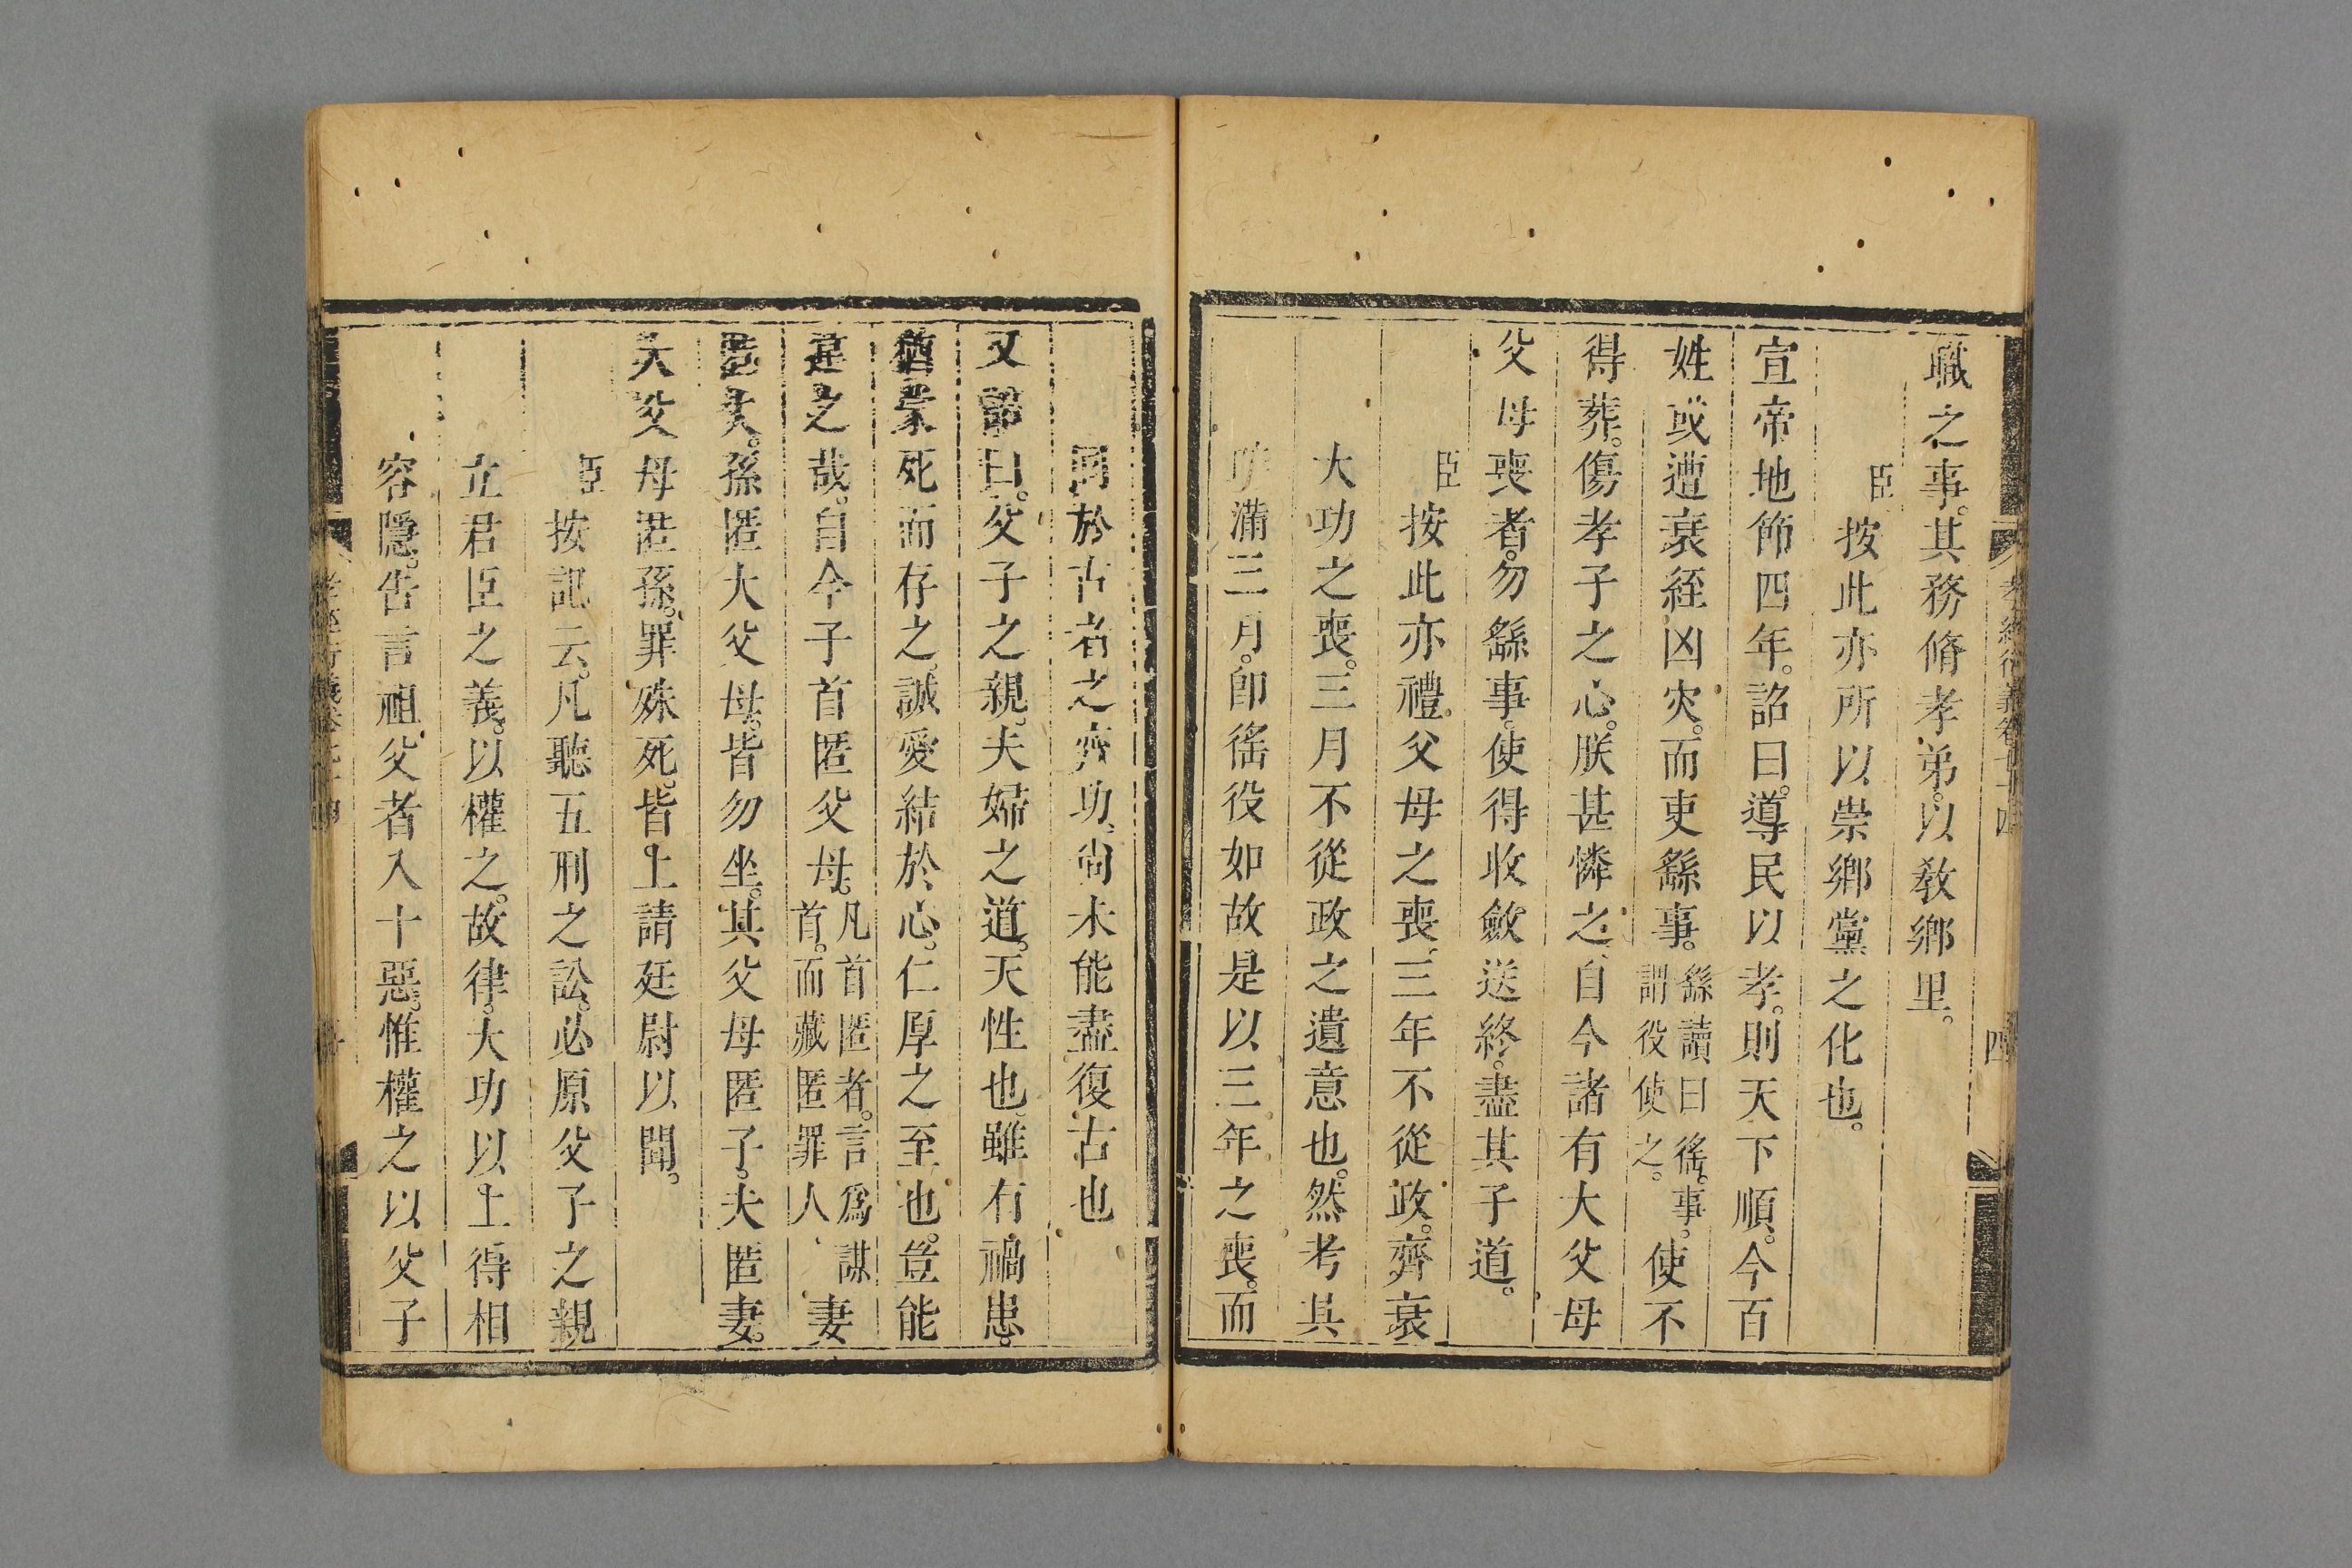 職之事。其務脩孝弟。以敎鄉里。
臣按此亦所以崇鄉黨之化也。
宣帝地節四年。詔曰。導民以孝。則天下順。今百
姓或遭衰絰凶灾。而吏繇事。繇讀曰徭。事。謂役使之。使不
得葬。傷孝子之心。朕甚憐之。自今諸有大父母
父母喪者。勿繇事。使得收斂送終。盡其子道。
臣按此亦禮。父母之喪。三年不從政。齊衰
大功之喪。三月不從政之遺意也。然考其
時滿三月。卽徭役如故是以三年之喪。而
同於古者之齊功。尙未能盡復古也
又詔曰。父子之親。夫婦之道。天性也雖有禍患。
猶蒙死而存之。誠愛結於心。仁厚之至也。豈能
違之哉。自今子首匿父母。凡首匿者。言爲謀首。而藏匿罪人妻
匿夫。孫匿大父母。皆勿坐。其父母匿子。夫匿妻。
大父母匿孫。罪殊死。皆上請廷尉以聞。
臣按記云。凡聽五刑之訟。必原父子之親
立君臣之義。以權之。故律。大功以上得相
容隱。告言祖父者入十惡。惟權之以父子
孝經衍義卷七十四
四